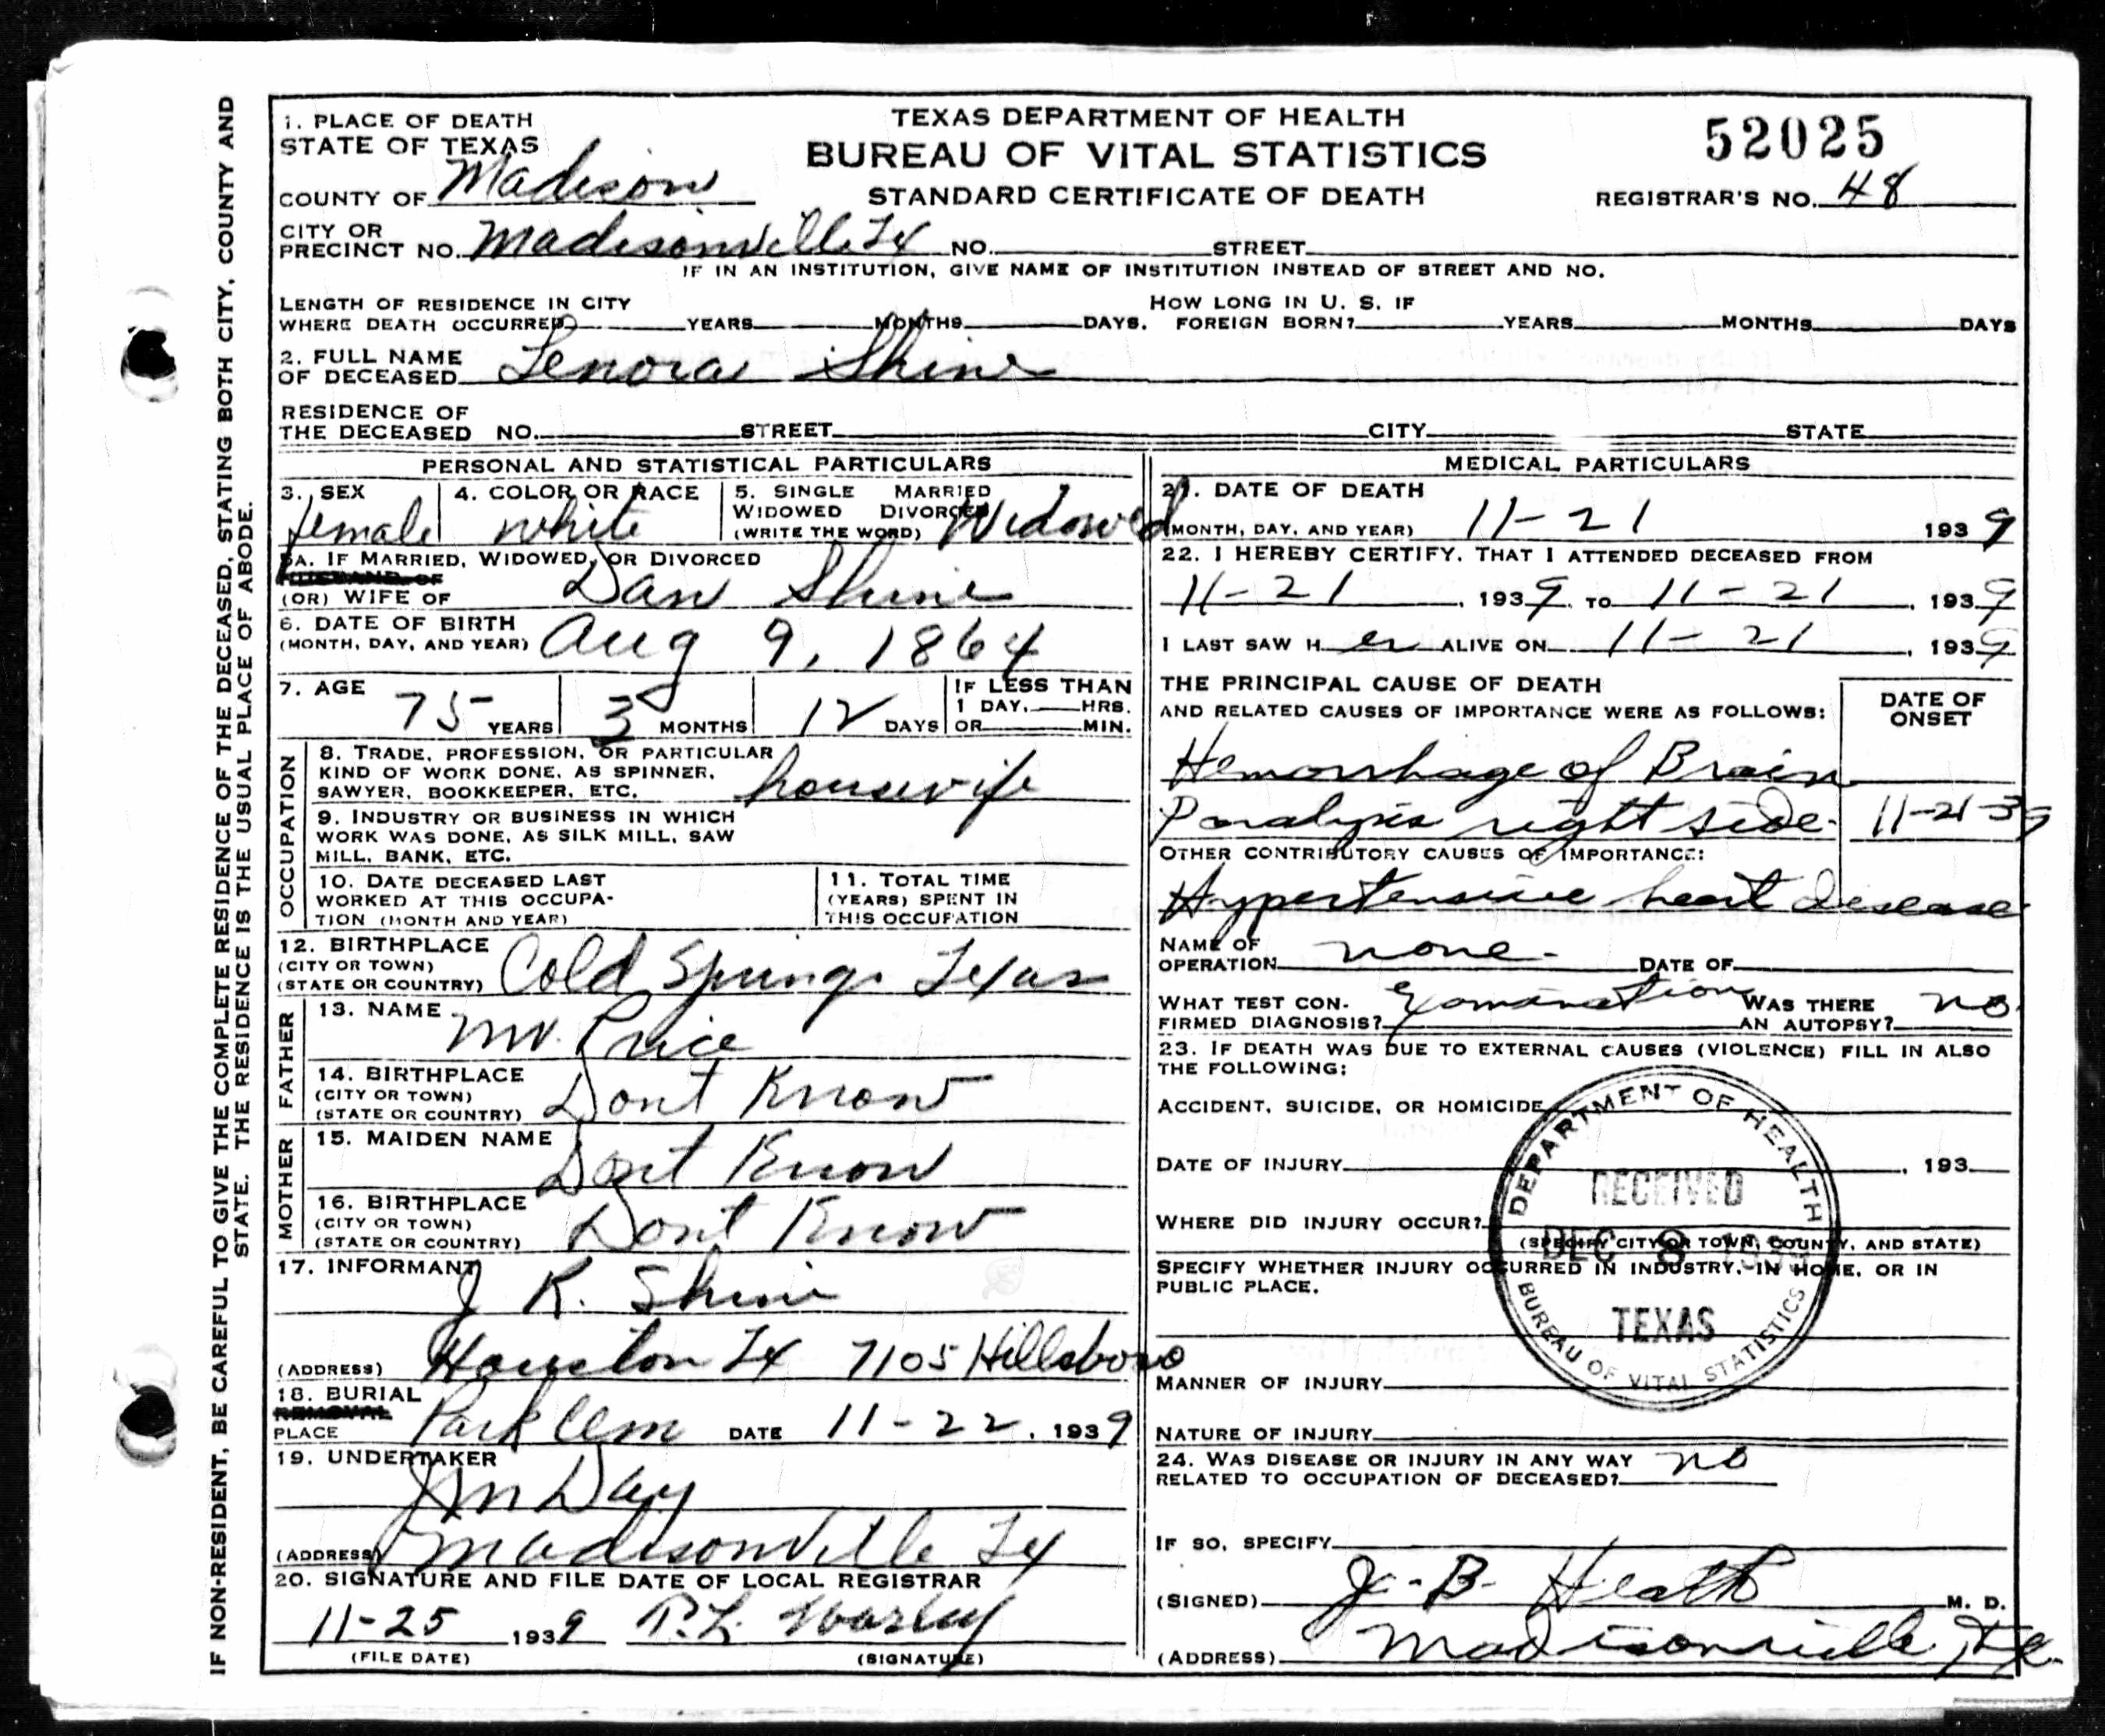 IF NON-RESIDENT, BE CAREFUL TO GIVE THE COMPLETE RESIDENCE OF THE DECEASED, STATING BOTH CITY, COUNTY AND
STATE. THE RESIDENCE IS THE USUAL PLACE OF ABODE.
TEXAS DEPARTMENT OF HEALTH
BUREAU OF VITAL STATISTICS
STANDARD CERTIFICATE OF DEATH
52025
REGISTRAR'S NO. 48
1. PLACE OF DEATH
STATE OF TEXAS
COUNTY OF Madison
CITY OR
PRECINCT NO. Madisonville Tx NO. STREET
IF IN AN INSTITUTION, GIVE NAME OF INSTITUTION INSTEAD OF STREET AND NO.
LENGTH OF RESIDENCE IN CITY HOW LONG IN U. S. IF
WHERE DEATH OCCURRED YEARS MONTHS DAYS. FOREIGN BORN? YEARS MONTHS DAYS
2. FULL NAME
OF DECEASED Lenora Shine
RESIDENCE OF
THE DECEASED NO. STREET CITY STATE
PERSONAL AND STATISTICAL PARTICULARS
3. SEX
female
4. COLOR OR RACE
white
5. SINGLE MARRIED
WIDOWED DIVORCED
(WRITE THE WORD) Widowed
5A. IF MARRIED, WIDOWED, OR DIVORCED
HUSBAND OF
(OR) WIFE OF Dan Shine
6. DATE OF BIRTH
(MONTH, DAY, AND YEAR) Aug 9, 1864
7. AGE 75 YEARS 3 MONTHS 12 DAYS
IF LESS THAN
1 DAY, HRS.
OR MIN.
OCCUPATION
8. TRADE, PROFESSION, OR PARTICULAR
KIND OF WORK DONE, AS SPINNER,
SAWYER, BOOKKEEPER, ETC. housewife
9. INDUSTRY OR BUSINESS IN WHICH
WORK WAS DONE, AS SILK MILL, SAW
MILL, BANK, ETC.
10. DATE DECEASED LAST
WORKED AT THIS OCCUPA-
TION (MONTH AND YEAR)
11. TOTAL TIME
(YEARS) SPENT IN
THIS OCCUPATION
12. BIRTHPLACE
(CITY OR TOWN)
(STATE OR COUNTRY) Cold Springs Texas
FATHER
13. NAME
Price
14. BIRTHPLACE
(CITY OR TOWN)
(STATE OR COUNTRY) Dont Know
MOTHER
15. MAIDEN NAME
Dont Know
16. BIRTHPLACE
(CITY OR TOWN)
(STATE OR COUNTRY) Dont Know
17. INFORMANT
J K. Shine
(ADDRESS) Houston Tx 7105 Hillsboro
18. BURIAL
REMOVAL
PLACE Park Cem DATE 11-22, 1939
19. UNDERTAKER
Day
(ADDRESS) Madisonville Tx
20. SIGNATURE AND FILE DATE OF LOCAL REGISTRAR
11-25 1939
(FILE DATE) (SIGNATURE)
MEDICAL PARTICULARS
21. DATE OF DEATH
(MONTH, DAY, AND YEAR) 11-21 1939
22. I HEREBY CERTIFY, THAT I ATTENDED DECEASED FROM
11-21, 1939, TO 11-21, 1939
I LAST SAW H er ALIVE ON 11-21, 1939
THE PRINCIPAL CAUSE OF DEATH
AND RELATED CAUSES OF IMPORTANCE WERE AS FOLLOWS:
DATE OF
ONSET
Hemorrhage of Brain
Paralysis right side. 11-21-39
OTHER CONTRIBUTORY CAUSES OF IMPORTANCE:
Hypertensive heart disease
NAME OF
OPERATION none. DATE OF
WHAT TEST CON-
FIRMED DIAGNOSIS? Examination
WAS THERE
AN AUTOPSY? no.
23. IF DEATH WAS DUE TO EXTERNAL CAUSES (VIOLENCE) FILL IN ALSO
THE FOLLOWING:
ACCIDENT, SUICIDE, OR HOMICIDE
DATE OF INJURY , 193
WHERE DID INJURY OCCUR?
(SPECIFY CITY OR TOWN, COUNTY, AND STATE)
SPECIFY WHETHER INJURY OCCURRED IN INDUSTRY, IN HOME, OR IN
PUBLIC PLACE.
DEPARTMENT OF HEALTH
RECEIVED
DEC 8
TEXAS
BUREAU OF VITAL STATISTICS
MANNER OF INJURY
NATURE OF INJURY
24. WAS DISEASE OR INJURY IN ANY WAY
RELATED TO OCCUPATION OF DECEASED? no
IF SO, SPECIFY
(SIGNED) J. B. Heath M. D.
(ADDRESS) Madisonville, Tex.